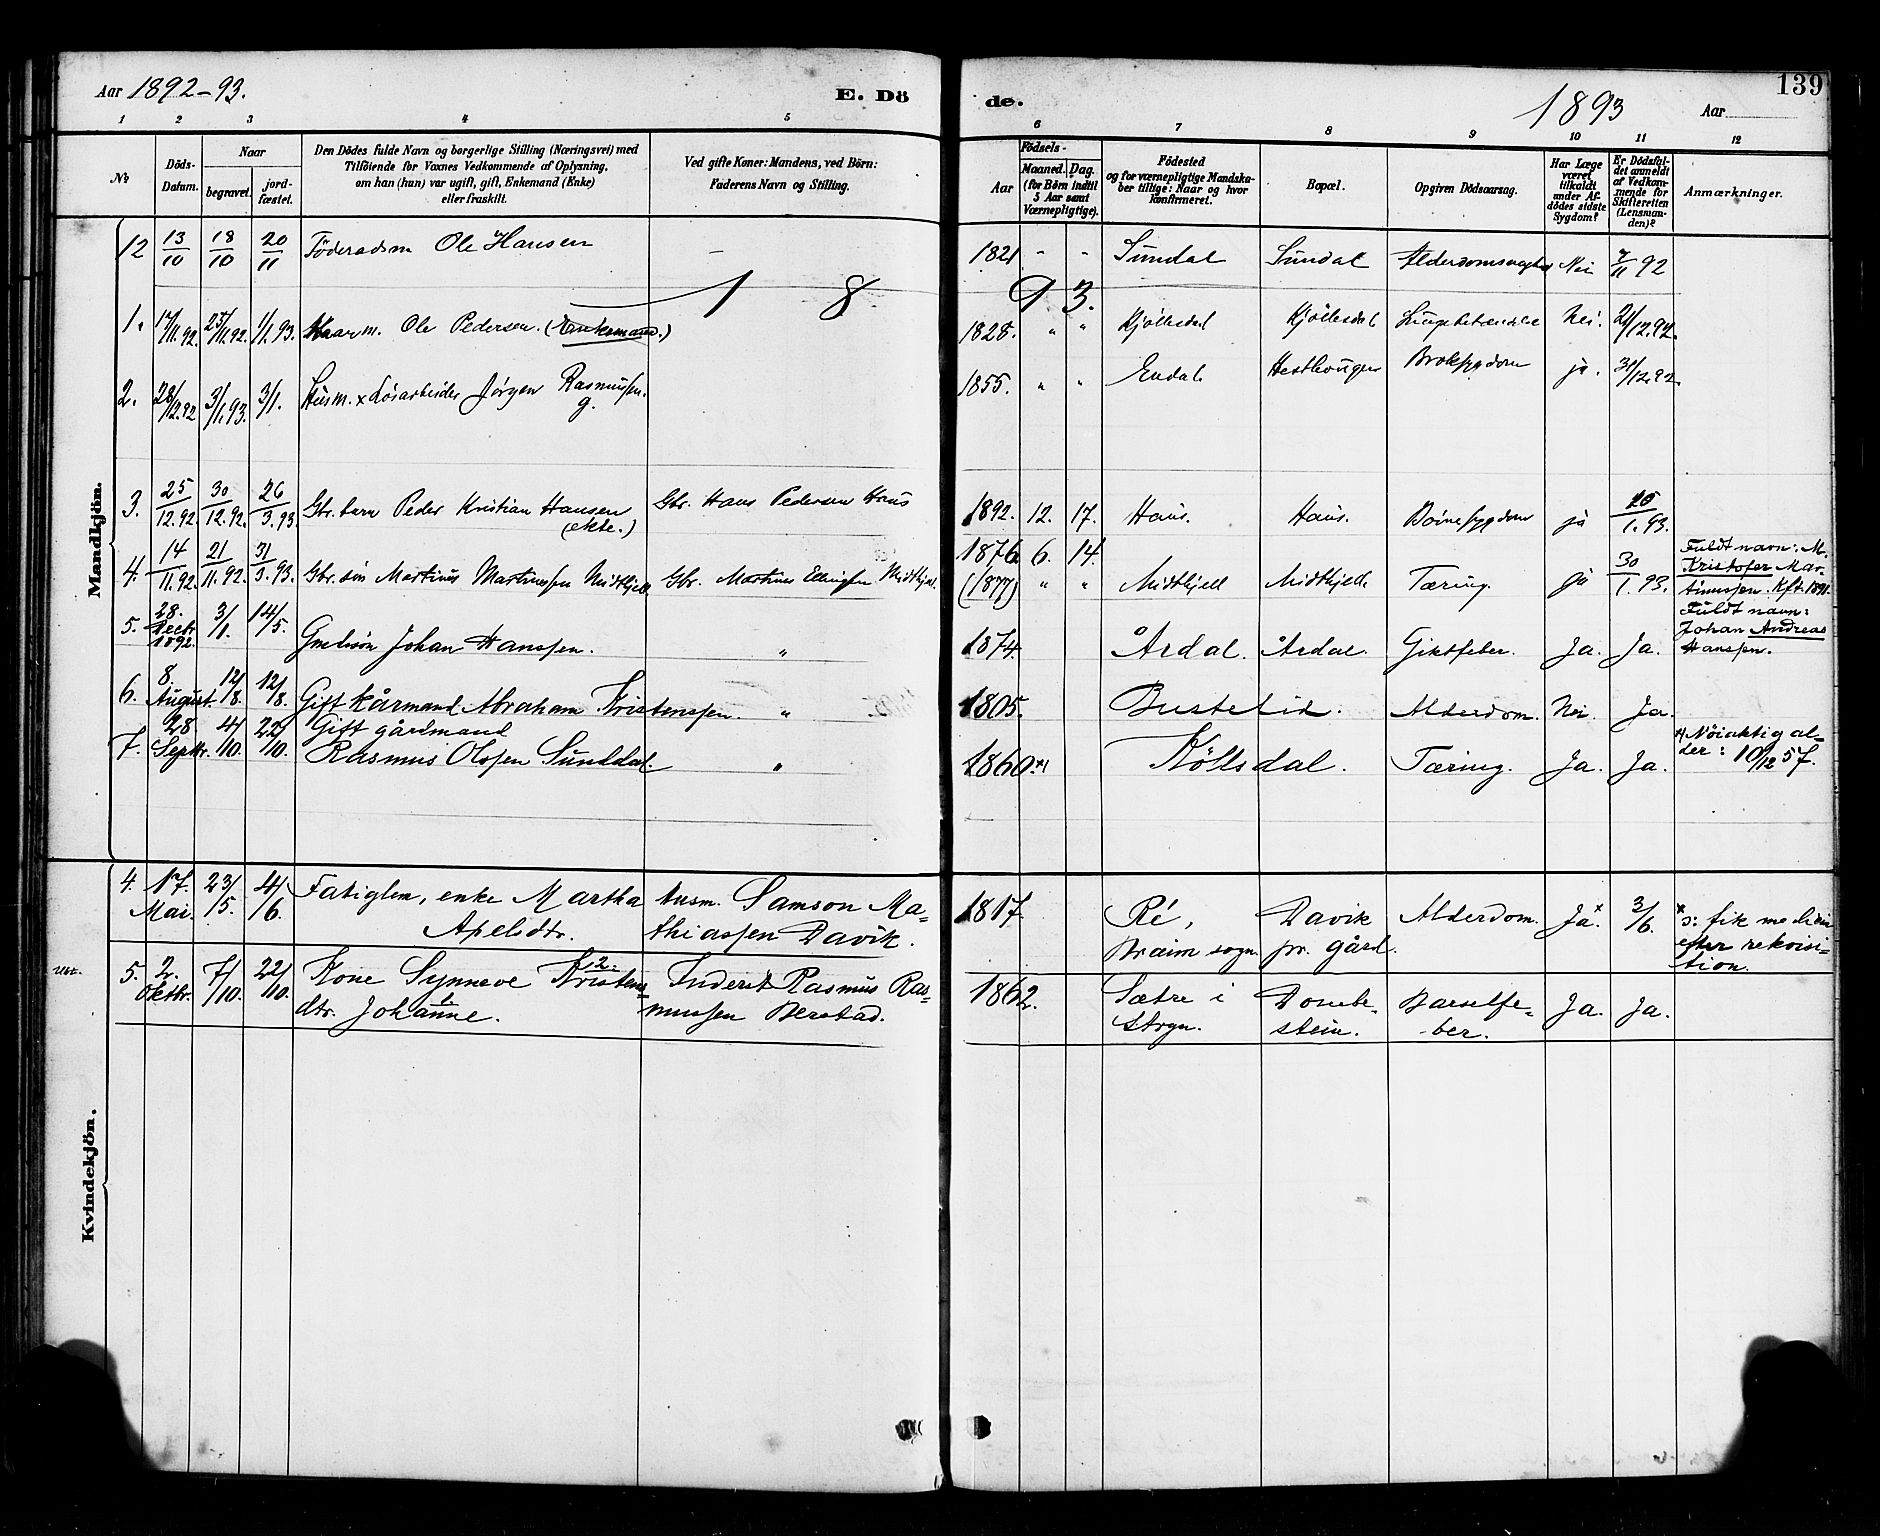 Aar 1892-93.
E. Dö
de.
1893
Aar
139
1 2 3 4 5 6 7 8 9 10 11 12
No
Döds-
Datum.
Naar
begravet.
jord-
fæstet.
Den Dödes fulde Navn og borgerlige Stilling (Næringsvei) med
Tilföiende for Voxnes Vedkommende af Oplysning,
om han (hun) var ugift, gift, Enkemand (Enke)
eller fraskilt.
Ved gifte Koner: Mandens, ved Börn:
Faderens Navn og Stilling.
Födsels-
Aar
Maaned. Dag.
(for Börn indtil
5 Aar samt
Værnepligtige).
Födested
og for værnepligtige Mandska-
ber tillige: Naar og hvor
Konfirmeret.
Bopæl.
Opgiven Dödsaarsag.
Har Læge
været
tilkaldt
under Af-
dödes sidste
Sygdom?
Er Dödsfal-
det anmeldt
af Vedkom-
mende for
Skifteretten
(Lensman-
den)?
Anmærkninger.
Mandkjön.
12 13/10 18/10 20/11 Föderadsm Ole Hansen - 1821 - - Sundal Sundal Alderdomssvaghed Nei 7/11 92
1 8 9 3.
1. 17/11.92. 23/11.92. 1/1.93. Kaarm. Ole Pedersen. (Enkemand.) 1828. " " Kjöllesdal Kjöllesdal Lungebetændelse Nei. 21/12.92.
2. 28/12.92 3/1.93. 3/1. Husm. x Lösarbeider Jörgen Rasmussen.
g.
1855. " " Endal Hesthougen Broksygdom ja. 31/12.92.
3. 25/12.92. 30/12.92. 26/3.93. Gbr. barn Peder Kristian Hansen
(ekte.)
Gbr. Hans Pedersen Haus 1892. 12. 17. Haus. Haus. ja 20/1.93.
4. 14/11.92. 21/11.92. 31/3.93. Gbr. sön Martinus Martinussen Midthjell Gbr. Martinus Ellingsen Midthjel. 1876 6. 14.
(1877) " " Midthjell Midthjell Tæring. ja 30/1.93.
Fuldt navn: M.
Kristofer Mar-
tinussen. Kft. 1891.
5. 28. Decbr 1892. 3/1. 14/5. Gmdssön Johan Hanssen. " 1874. Årdal. Årdal. Giktfeber. Ja. Ja.
Fuldt navn:
Johan Andreas
Hanssen.
6. 8. August 12/8. 12/8. Gift kårmand Abraham Kristenssen. " 1805. Bustelid. Alderdom. Nei. Ja.
7. 28 Septbr. 4/10. 22/10. Gift gårdmand
Rasmus Olssen Sunddal. " 1860.*) Köllsdal. Tæring. Ja. Ja.
*) Nöiaktig al-
der: 10/12 57.
Kvindekjön.
4. 17. Mai. 23/5. 4/6. Fatiglem, enke Martha
Apelsdtr.
husm. Samson Ma-
thiassen Davik.
1817. Ré,
Breim sogn.
Davik
pr. gård.
Alderdom. Ja x 3/6.
x ɔ: fik medicin
efter rekvisi-
tion.
5. 2. Oktbr. 7/10. 22/10. Kone Synneve Kristens-
dtr. Johanne.
2. 1.
Inderst Rasmus Ras-
mussen Berstad.
1862. Sætre i
Stryn.
Dombe-
stein.
Barselfe-
ber.
Ja. Ja.